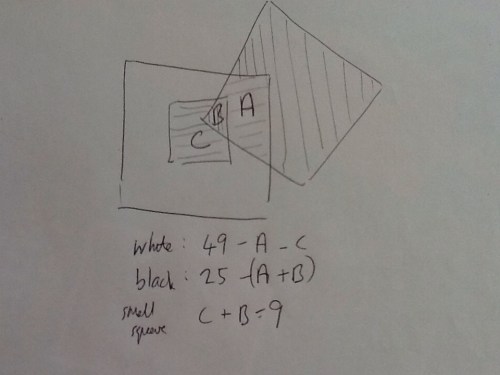 B A
C
white: 49 - A - C
black: 25 - (A + B)
small square C + B = 9